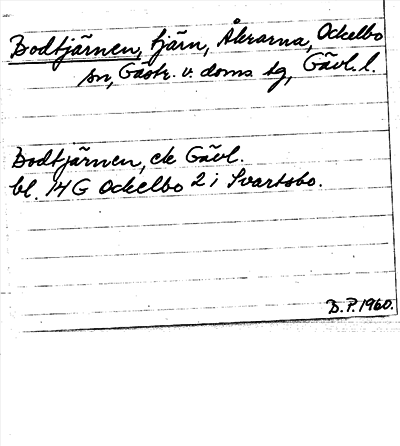 Bodtjärnen, tjärn, Åkrarna, Ockelbo
sn, Gästr. v. doms tg, Gävl. l.
Bodtjärnen, ek Gävl.
bl. 14 G Ockelbo 2 i Svartsbo.
D.P. 1960.